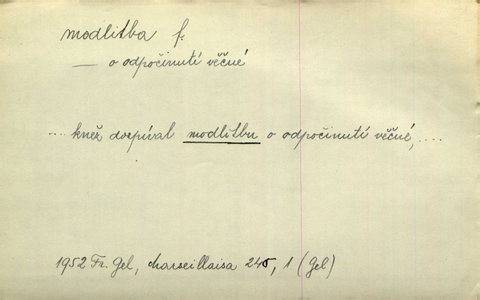 modlitba f.
— o odpočinutí věčné
.... kněz dozpíval modlitbu o odpočinutí věčné, ....
1952 Fr. Gel, Marseillaisa 245, 1 (Gel)